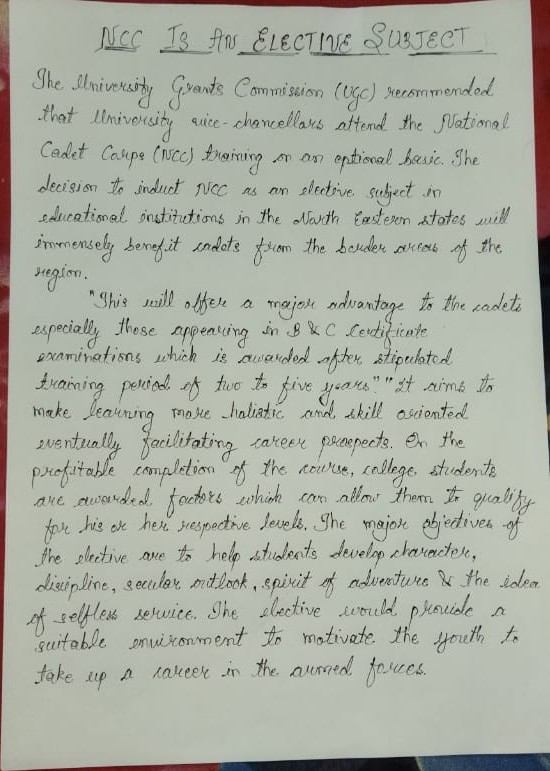 NCC IS AN ELECTIVE SUBJECT
The University Grants Commission (UGC) recommended
that University vice-chancellars attend the National
Cadet Corps (NCC) training on an optional basic. The
decision to induct NCC as an elective subject in
educational institutions in the North Eastern states will
immensely benefit cadets from the border areas of the
region.
"This will offer a major advantage to the cadets
especially those appearing in B & C Certificate
examinations which is awarded after stipulated
training period of two to five years" "It aims to
make learning more holistic and skill oriented
eventually facilitating career prospects. On the
profitable completion of the course, college, students
are awarded factors which can allow them to qualify
for his or her respective levels. The major objectives of
the elective are to help students develop character,
discipline, secular outlook, spirit of adventure & the idea
of selfless service. The elective would provide a
suitable environment to motivate the youth to
take up a career in the armed forces.